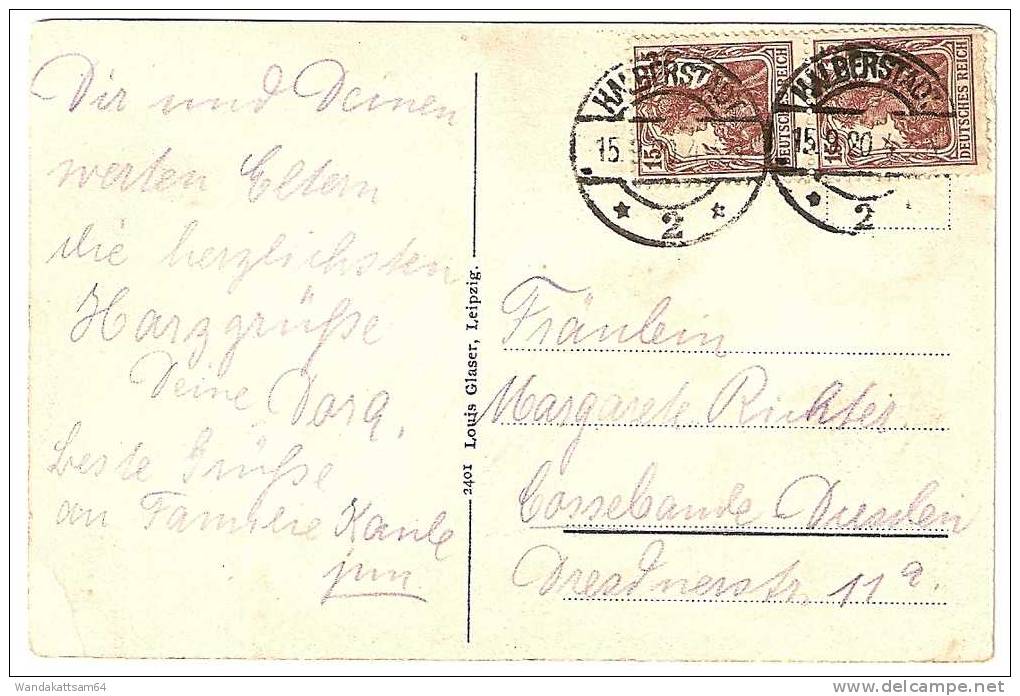 Dir und Deinen
werten Eltern
die herzlichsten
Harzgrüße
Deine Dora,
beste Grüße
an Familie Kaule
jun.
2401 Louis Glaser, Leipzig.
HALBERSTADT
15.
2
15
DEUTSCHES REICH
HALBERSTADT
15.9.20
2
DEUTSCHES REICH
Fräulein
Margarete Richter
Cossebaude Dresden
Dresdnerstr. 11a.
Wandakattsam64
delcampe.net